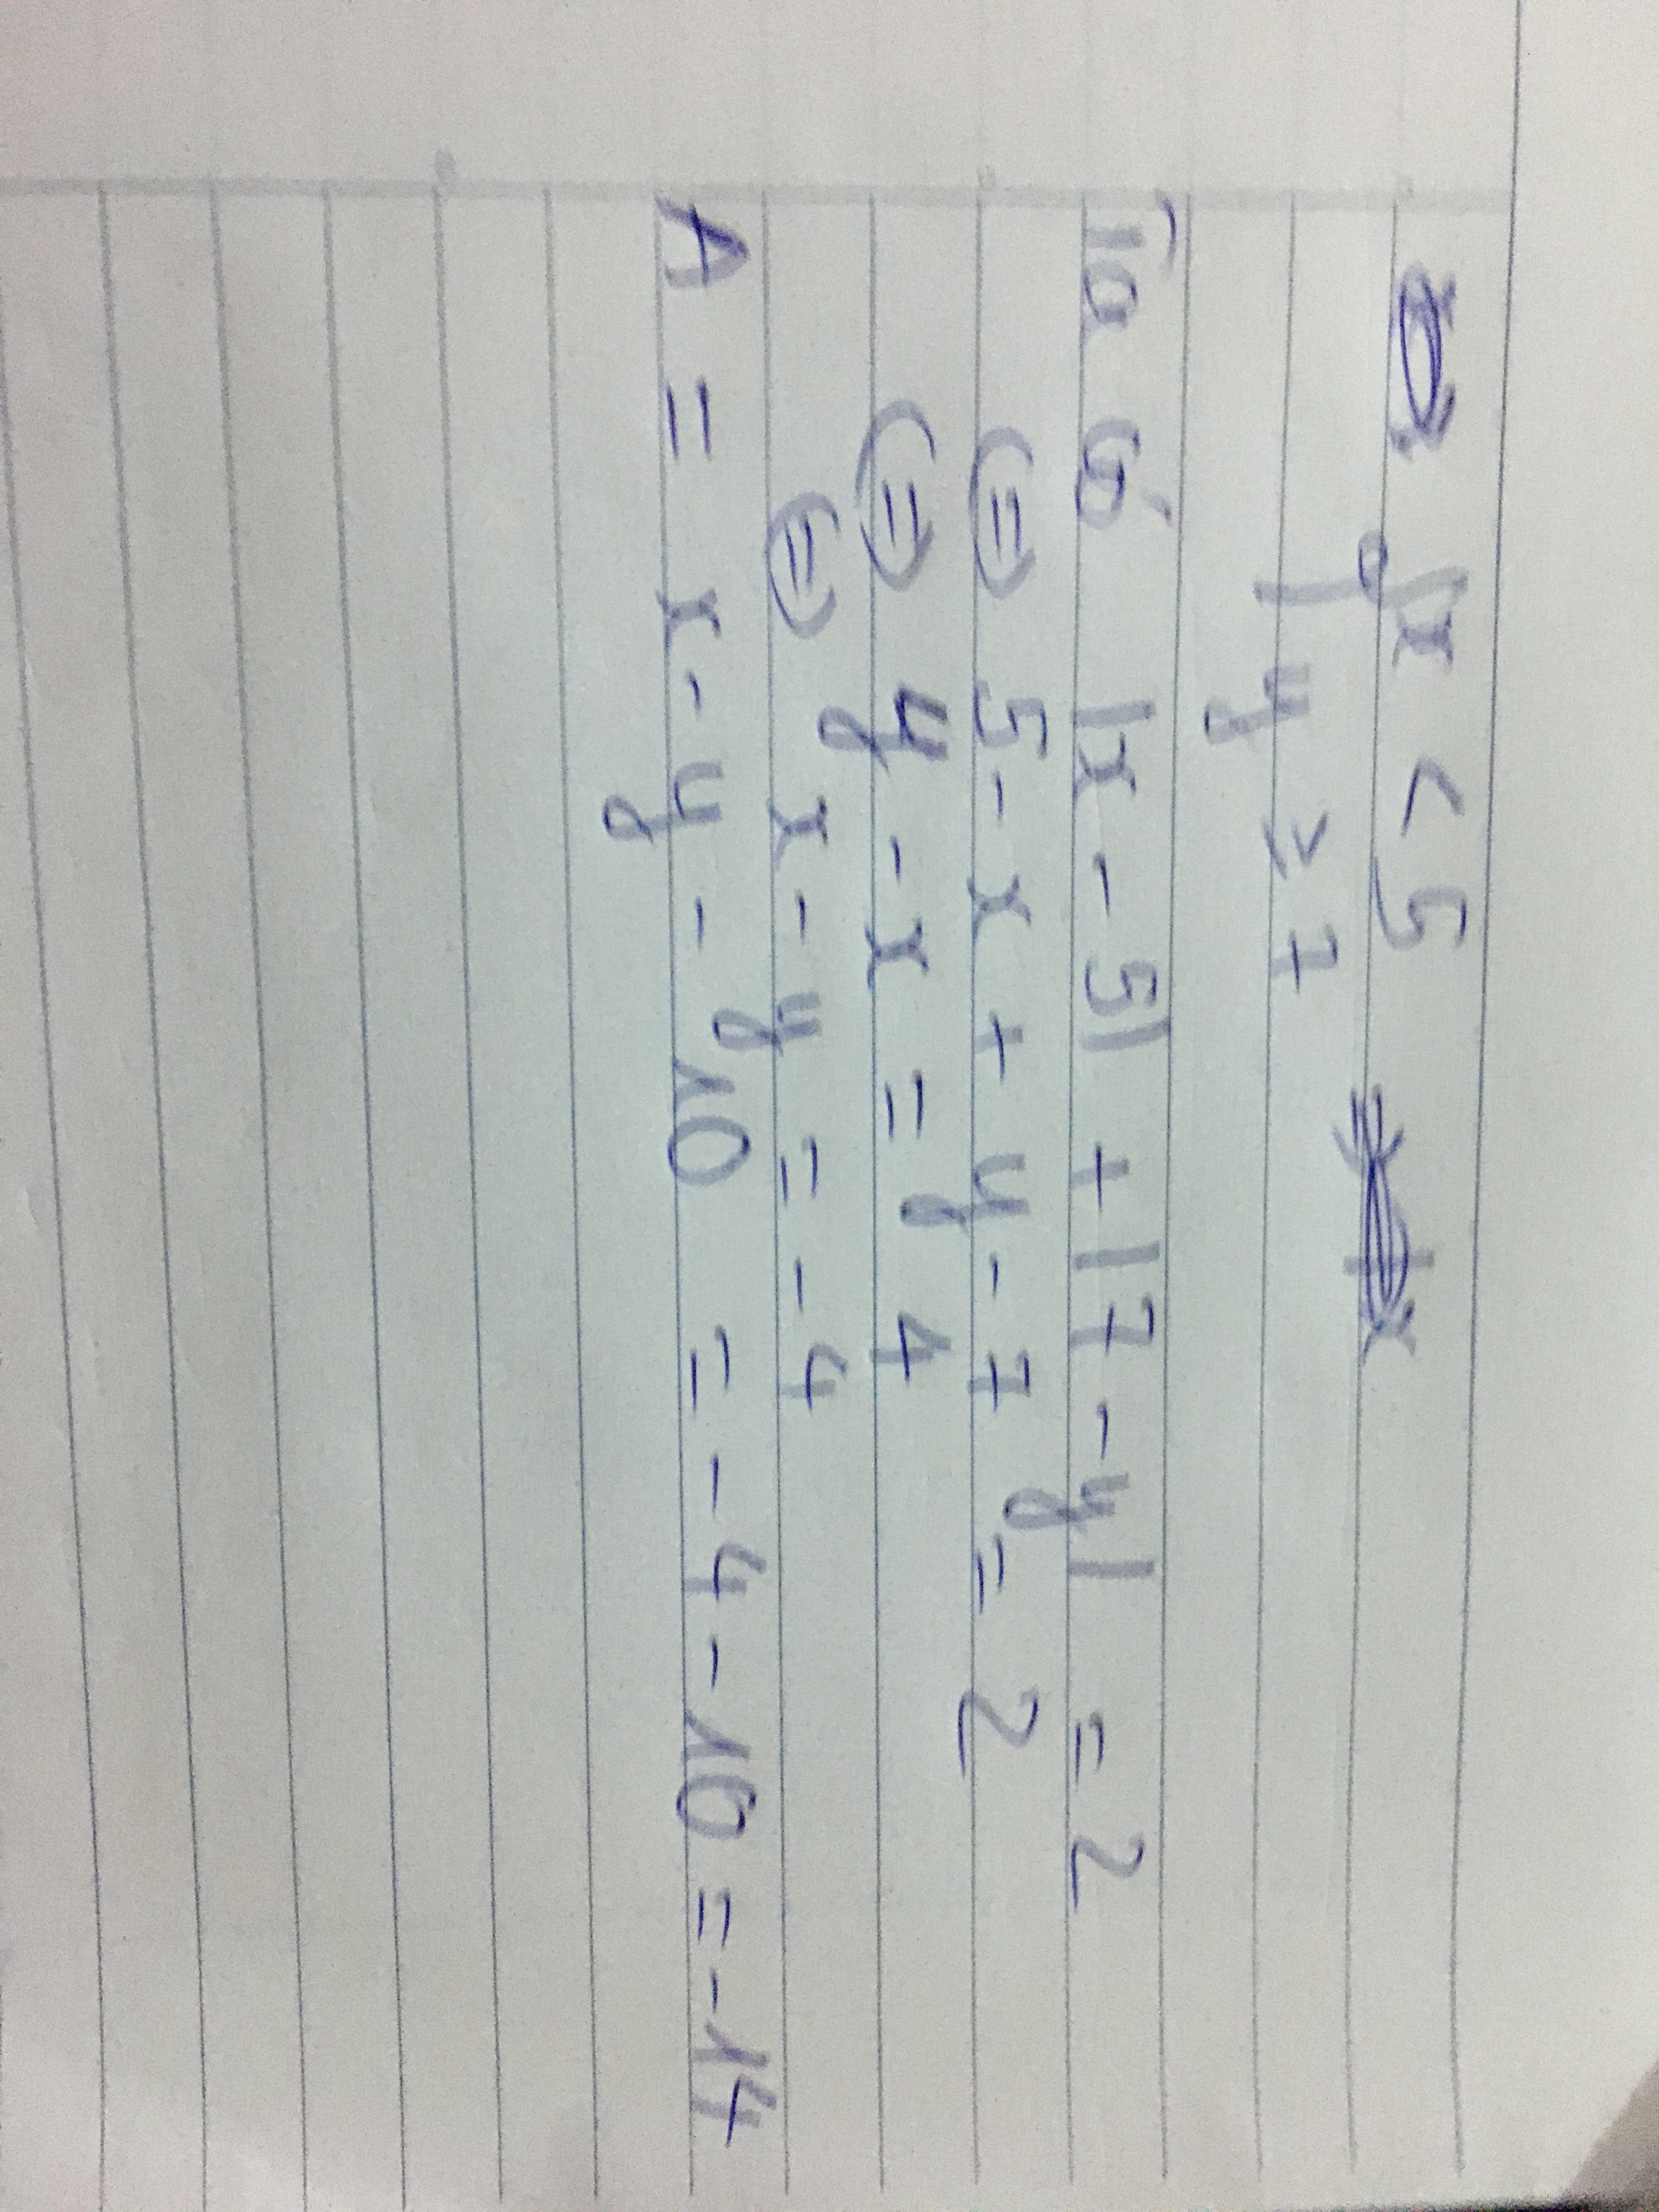 x < 5
y ≥ 7
Ta có |x - 5| + |7 - y| = 2
(=) 5 - x + y - 7 = 2
(=) y - x = 4
(=) x - y = -4
A = x - y - 10 = -4 - 10 = -14